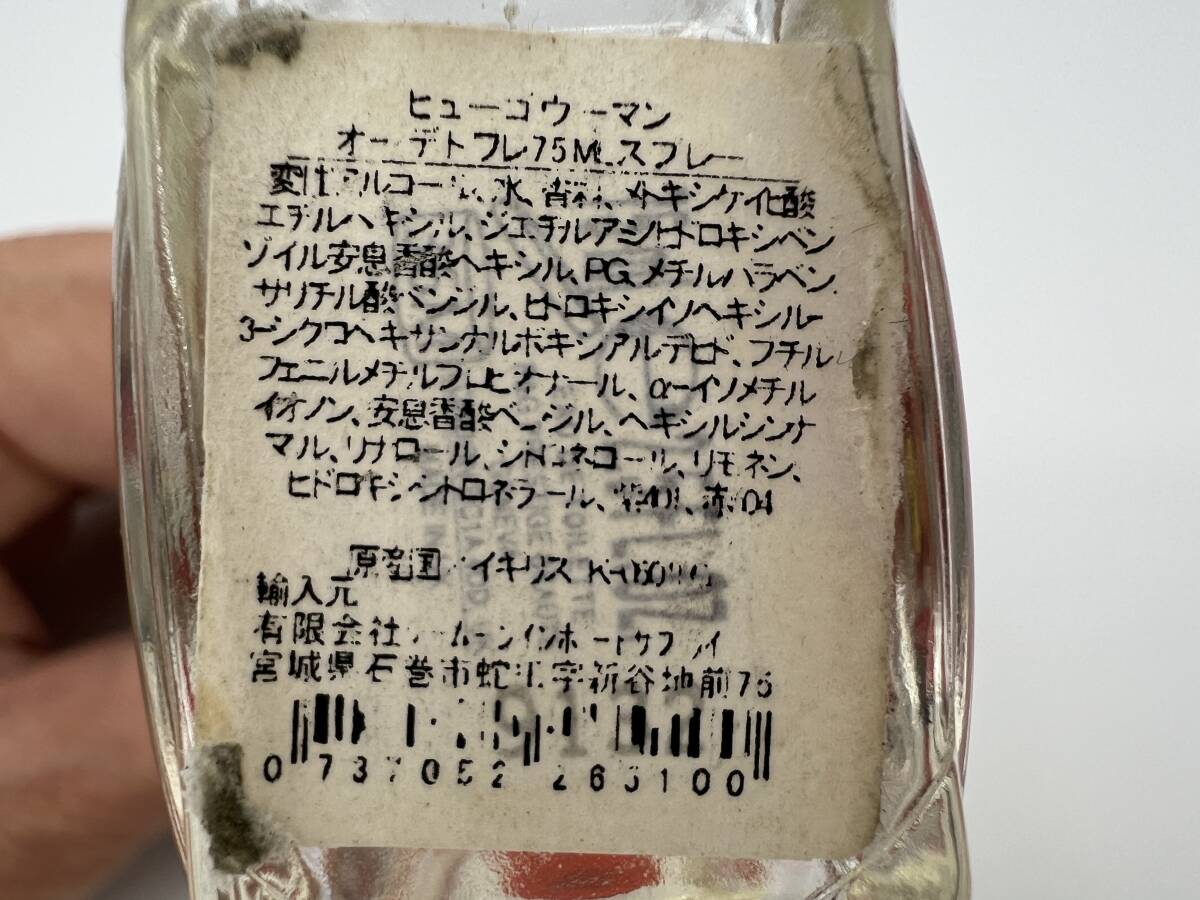 ヒューゴウーマン
オーデトワレ75MLスプレー
変性アルコール、水、香料、メトキシケイヒ酸
エチルヘキシル、ジエチルアミノヒドロキシベン
ゾイル安息香酸ヘキシル、PG、メチルパラベン、
サリチル酸ベンジル、ヒドロキシイソヘキシル-
3-シクロヘキサンカルボキシアルデヒド、ブチル
フェニルメチルプロピオナール、α-イソメチル
イオノン、安息香酸ベンジル、ヘキシルシンナ
マル、リナロール、シトロネロール、リモネン、
ヒドロキシシトロネラール、紫401、赤504
原産国 イギリス
輸入元
有限会社
宮城県石巻市蛇田字新谷地前76
0 737052 265100